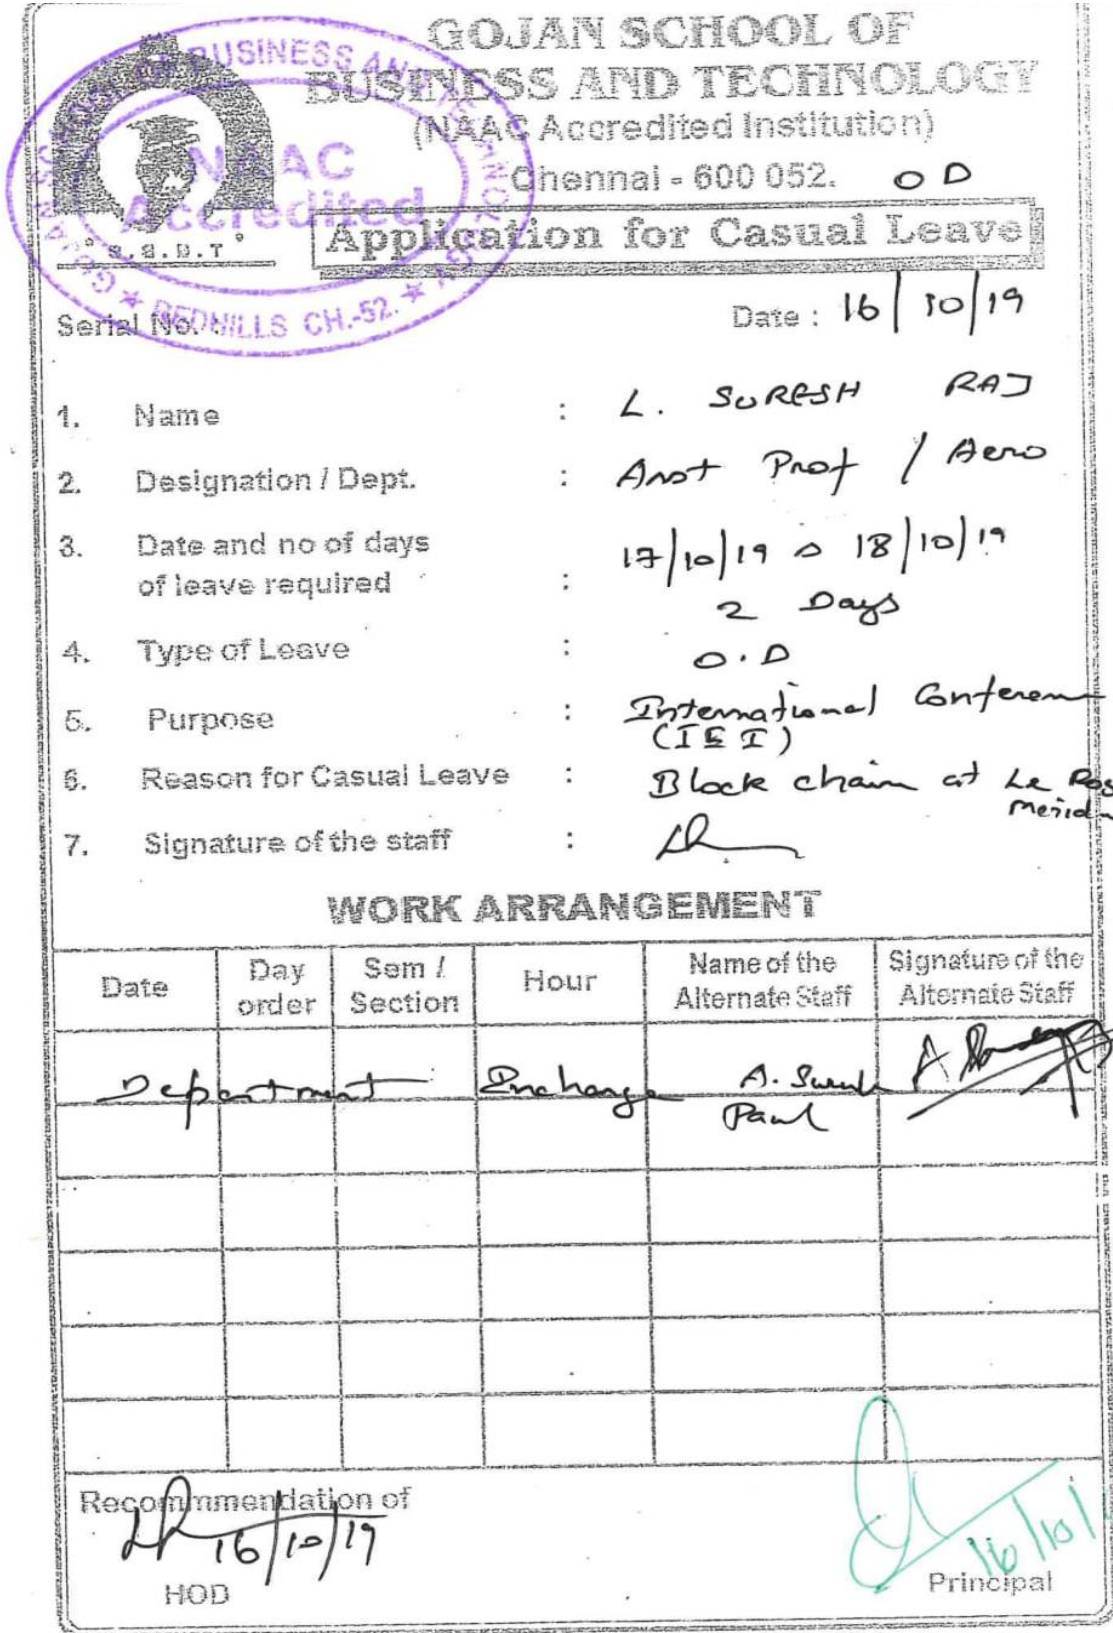 GOJAN SCHOOL OF
BUSINESS AND TECHNOLOGY
(NAAC Accredited Institution)
Chennai - 600 052. O D
Application for Casual Leave
G.S.B.T
NAAC
Accredited
REDHILLS CH.-52.
Serial No. :
Date : 16/10/19
1. Name : L. SURESH RAJ
2. Designation / Dept. : Asst Prof / Aero
3. Date and no of days 17/10/19 & 18/10/19
of leave required : 2 Days
4. Type of Leave : O.D
5. Purpose : International Conferen
(IEI)
6. Reason for Casual Leave : Block chain at Le Roy
Merid
7. Signature of the staff :
WORK ARRANGEMENT
Date Day order Sem / Section Hour Name of the Alternate Staff Signature of the Alternate Staff
Department Incharge A. Suresh
Paul
Recommmendation of
16/10/19
16/10/
HOD Principal